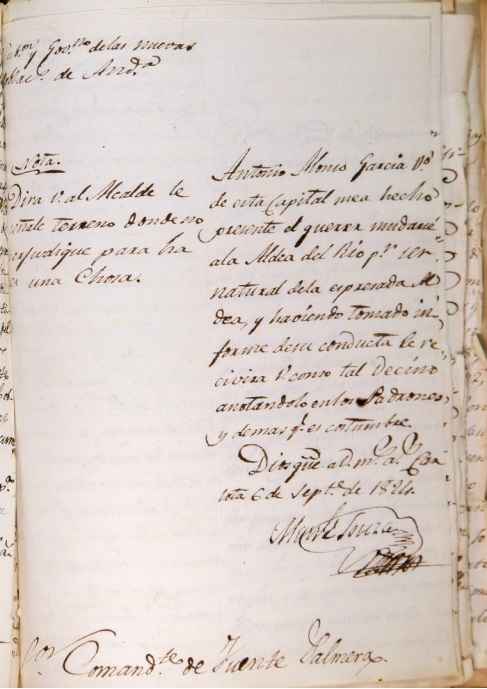 y Govno. de las nuevas
de Anda.
Nota.
Dira V. al Alcalde le
señale terreno donde no
perjudique para ha
una Chosa.
Antonio Alonso Garcia Vo.
de esta Capital mea hecho
presente el querer mudarse
ala Aldea del Rio pr. ser
natural dela espresada Al-
dea, y haviendo tomado in-
forme desu conducta le re-
civira V. como tal Vecino
anotandolo enlos Padrones,
y demas qe. es costumbre.
Dios gue. a V. ms. as. Car
lota 6 de Septe. de 1824.
Sor. Comandte. de Fuente Palmera.